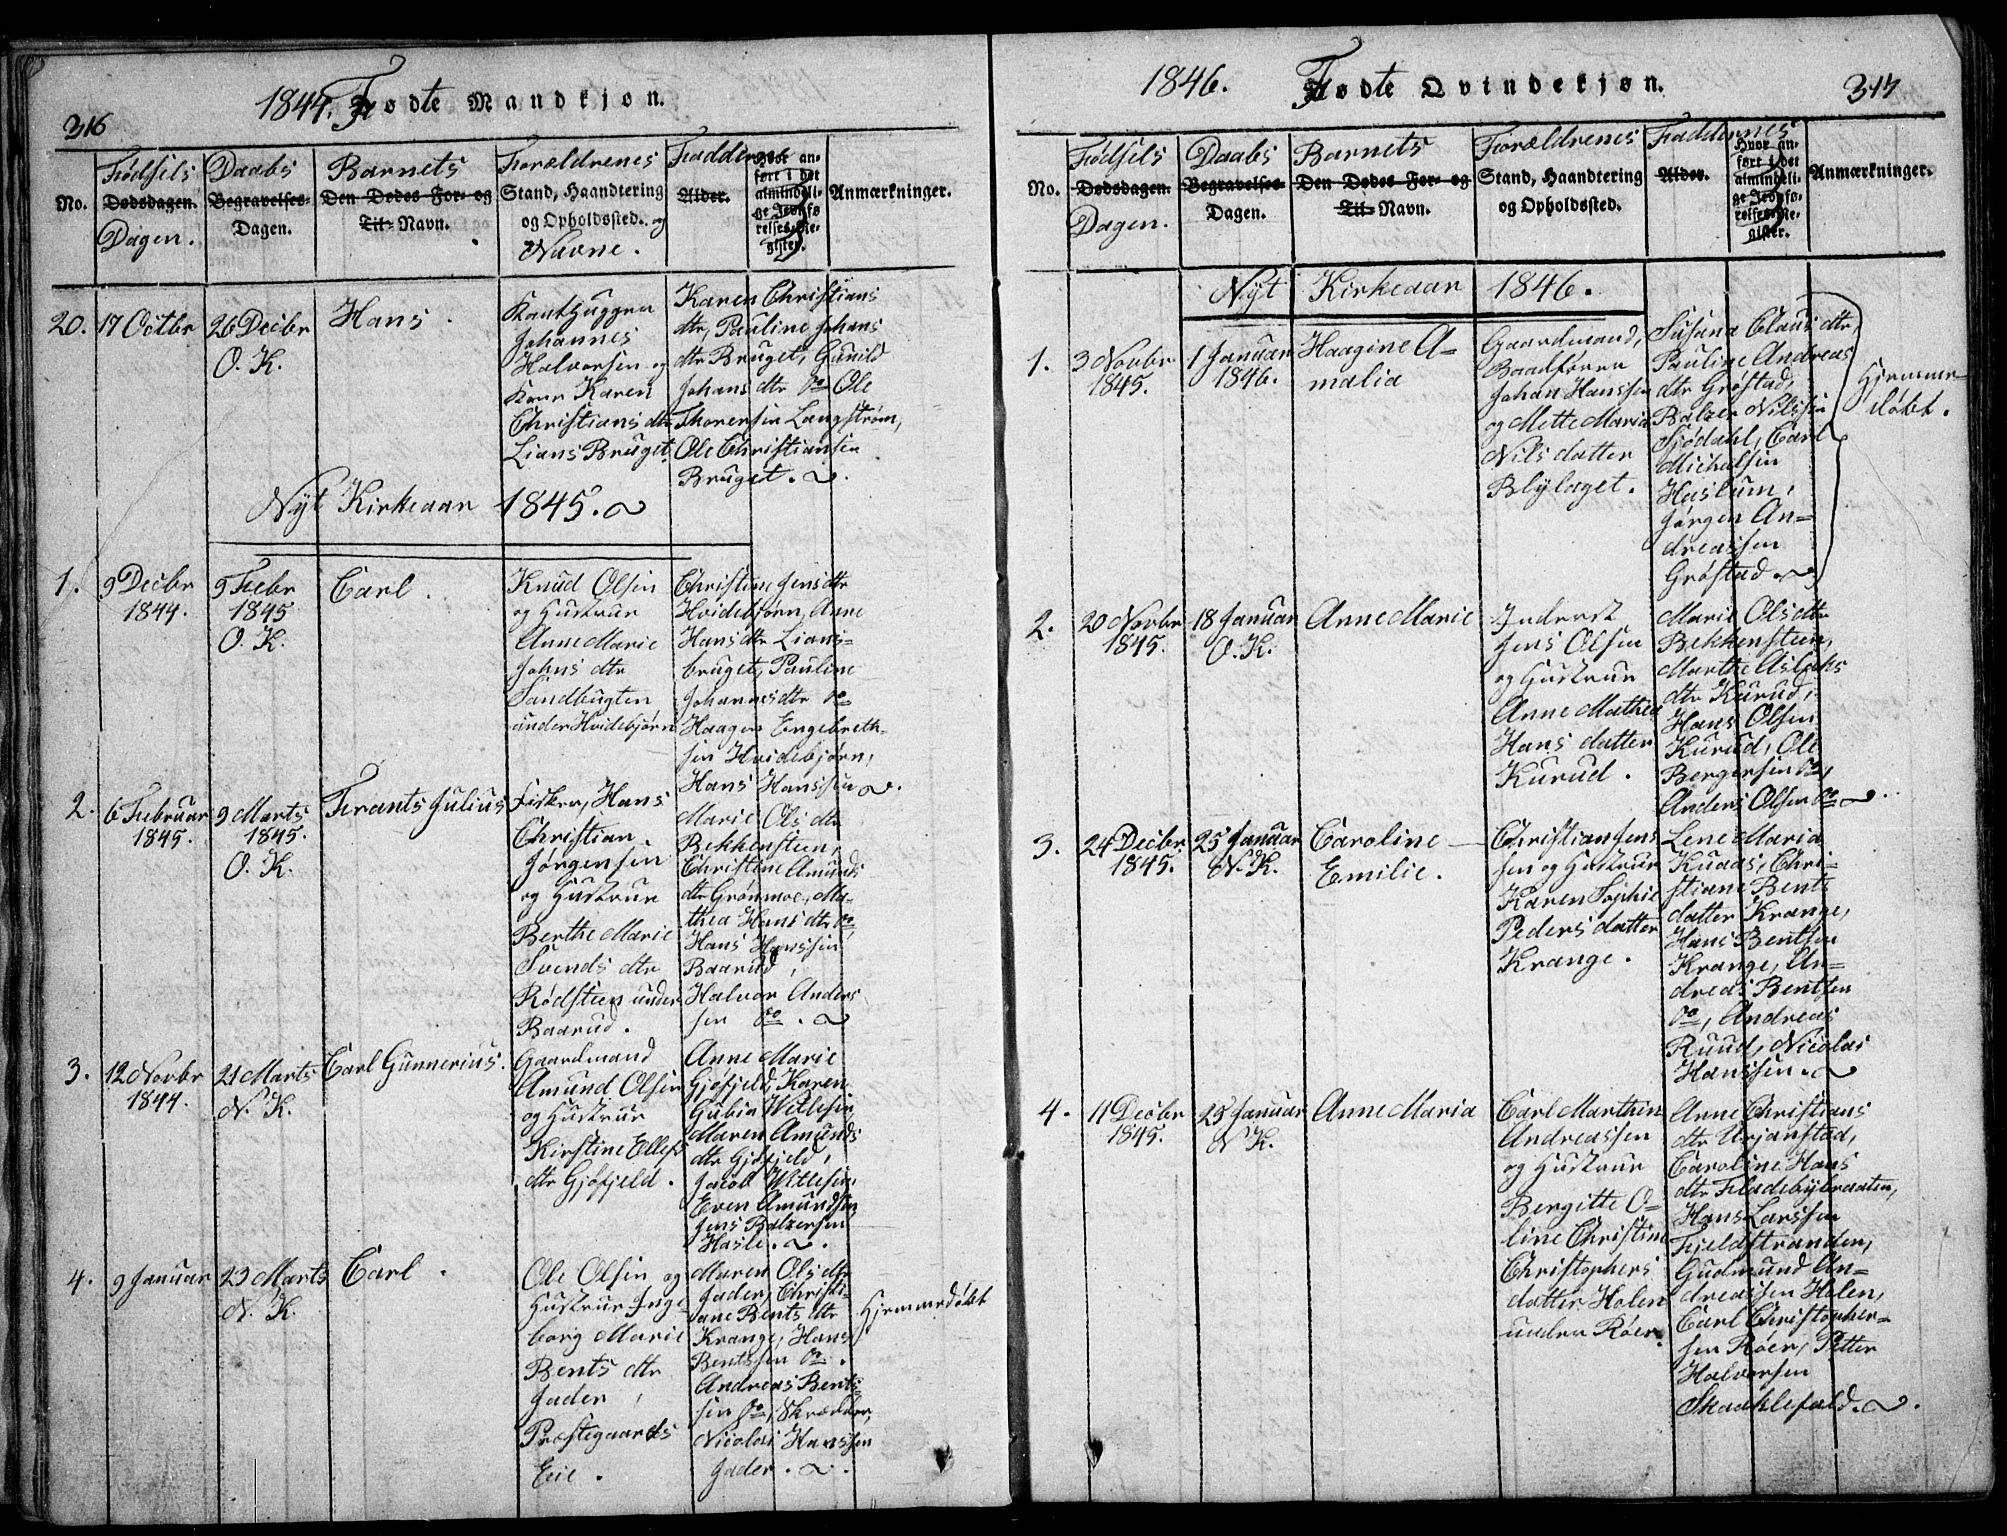 316
1844. Fødte Mandkjøn.
No.
Fødsels
Dødsdagen.
Dagen.
Daabs
Begravelses-
Dagen.
Barnets
Den Dødes For- og
Til- Navn.
Forældrenes
Stand, Haandtering
og Opholdssted. og
Navne.
Faddernes
Alder.
Hvor an-
ført i det
almindeli-
ge Jevnfø-
relses-Re-
gister.
Anmærkninger.
20.
17 Octbr
26 Decbr
O. K.
Hans.
Johannes
Halvorsen og
Kone Karen
Christians dtr
Lians Bruget.
Karen Christians
dtr, Pauline Johans
dtr Bruget, Gunild
Johans dtr do Ole
Thoresen Langstrøm,
Ole Christiansen
Bruget.
Nyt Kirkeaar 1845.
1.
9 Decbr
1844.
9 Febr
1845
O. K.
Carl.
Knud Olsen
og Hustrue
Anne Marie
Johns dtr
Sandbugten
under Hvidebjørn
Christine Jens dtr
Hvidebjørn, Anne
Hans dtr Lians-
bruget, Pauline
Johannes dtr do
Haagen Engebreth-
sen Hvidebjørn,
Hans Hanssen
2.
6 Februar
1845.
9 Marts
1845.
O. K.
Frants Julius
Fisker, Hans
Christian
Jørgensen
og Hustrue
Berthe Marie
Svends dtr
Rødsteen under
Baarud.
Marie Ols dtr
Bekkensteen,
Christine Amunds
dtr Grønmoe, Ma-
thea Hans dtr do,
Hans Hanssen
Baarud,
Halvor Anders
sen do.
3.
12 Novbr
1844.
21 Marts
N. K.
Carl Gunnerius.
Gaardmand
Amund Olsen
og Hustrue
Kirstine Ellefs
dtr Gjøfjeld.
Anne Marie
Gjøfjeld, Karen
Gubia Wetlesen
Maren Amunds
dtr Gjøfjeld,
Jacob Wetlesen,
Even Amundsen
Jens Balzersen
Hasle.
4.
9 Januar
23 Marts
N. K.
Carl.
Ole Olsen og
Hustrue Inge
borg Marie
Bents dtr
Jader,
Præstegaards
Eie.
Maren Ols dtr
Jader, Christi-
ane Bents dtr
Krange, Hans
Bentssen do.
Andreas Bents-
sen do, Skrædder,
Nicolai Hanssen
Jader.
Hjemmedøbt
1846. Fødte Qvindekjøn.
317
No.
Fødsels
Dødsdagen.
Dagen.
Daabs
Begravelses-
Dagen.
Barnets
Den Dødes For- og
Til- Navn.
Forældrenes
Stand, Haandtering
og Opholdssted.
Faddernes
Alder.
Hvor an-
ført i det
almindeli-
ge Jevnfø-
relses-Re-
gister.
Anmærkninger.
Nyt Kirkeaar 1846.
1.
3 Novbr
1845.
1 Januar
1846.
Haagine A-
malia
Gaardmand,
Baadfører
Johan Hanssen
og Mette Maria
Nils datter
Blylaget.
Susana Claus dtr,
Pauline Andreas
dtr Grøstad,
Balzer Nilssen
Sjødahl, Carl
Michelsen
Haslum,
Jørgen An-
dreassen
Grøstad.
Hjemme-
døbt.
2.
20 Novbr
1845.
18 Januar
O. K.
Anne Marie
Inderst
Jens Olsen
og Hustrue
Anne Mathea
Hans datter
Kurud.
Marie Ols dtr
Bekkensteen,
Marthe Aslaks
dtr Kurud,
Hans Olsen
Kurud, Ole
Bergersen do,
Anders Olsen do
3.
24 Decbr
1845.
25 Januar
N. K.
Caroline
Emilie.
Christian Jens
sen og Hustrue
Karen Sophie
Peders datter
Krange.
Lene Maria
Kuaas, Chri-
stiane Bents
datter Krange,
Hans Bentsen
Krange, An-
dreas Bentsen
do, Andreas
Ruud, Nicolai
Hanssen.
4.
11 Decbr
1845.
25 Januar
N K.
Anne Maria
Carl Marthin
Andreassen
og Hustrue
Bergitte O-
line Christine
Christophers
datter Holen
under Røer.
Anne Christians
dtr Urjanstad,
Caroline Hans
dtr Fladebybraaten,
Hans Larssen
Fjeldstranden,
Gudmund An-
dreassen Holen,
Carl Christopher-
sen Røer, Petter
Halvorsen
Skaaklefald.